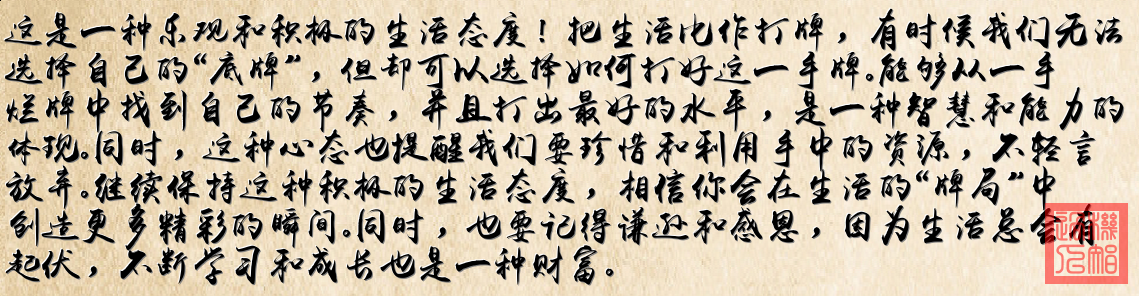 这是一种乐观和积极的生活态度！把生活比作打牌，有时候我们无法
选择自己的“底牌”，但却可以选择如何打好这一手牌。能够从一手
烂牌中找到自己的节奏，并且打出最好的水平，是一种智慧和能力的
体现。同时，这种心态也提醒我们要珍惜和利用手中的资源，不轻言
放弃。继续保持这种积极的生活态度，相信你会在生活的“牌局”中
创造更多精彩的瞬间。同时，也要记得谦逊和感恩，因为生活总会有
起伏，不断学习和成长也是一种财富。